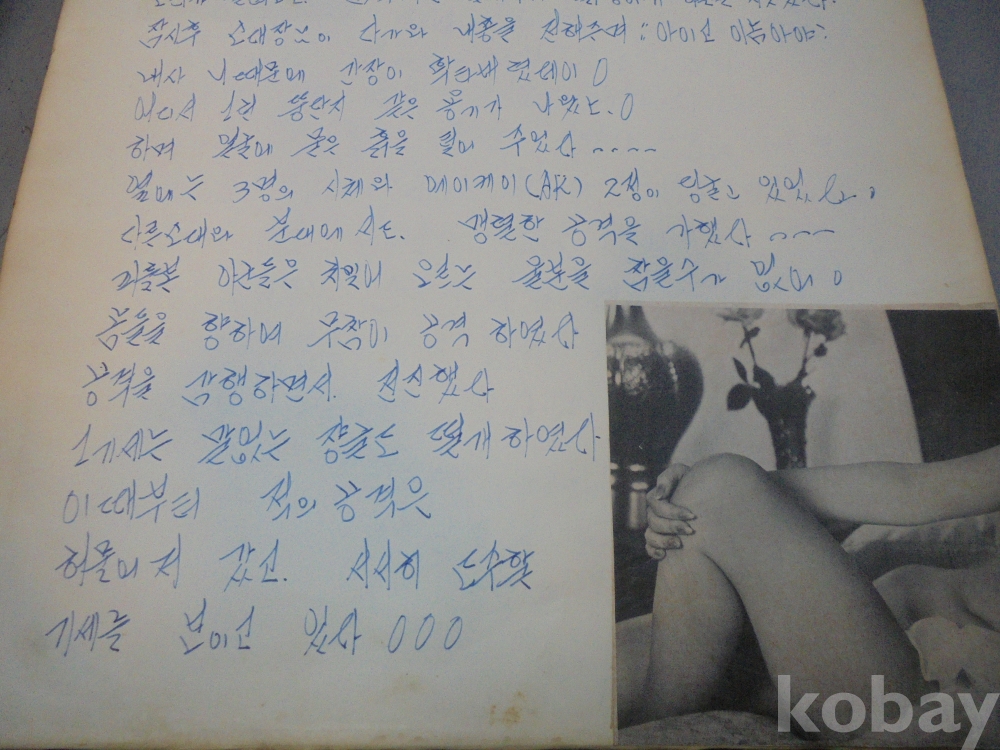 잠시후 소대장님이 다가와 내용을 전해주며 "아이고 이놈아야"
내사 니때문에 간장이 확타버렸데이 0
어디서 그런 뚱단지 같은 용기가 나왔노. 0
하며 얼굴에 묻은 흙을 털어 주었다 ~~~~
옆에는 3명의 시체와 에이케이(AK) 2정이 뒹굴고 있었다.
다른소대와 분대에서도. 맹렬한 공격을 가했다 ~~~
아군들은 치밀어 오르는 울분을 참을수가 없어 0
놈들을 향하여 무참이 공격 하였다
공격을 감행하면서. 전진했다
그기세는 끝없는 정글도 떨게하였다
이때부터 적의 공격은
허물어져 갔고. 서서히 도주할
기세를 보이고 있다 000
kobay